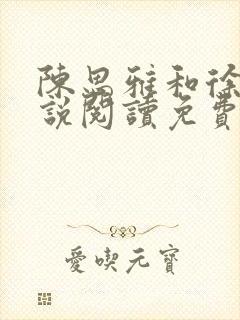 陳思雅和徐
說閱讀免費
愛喫元寶